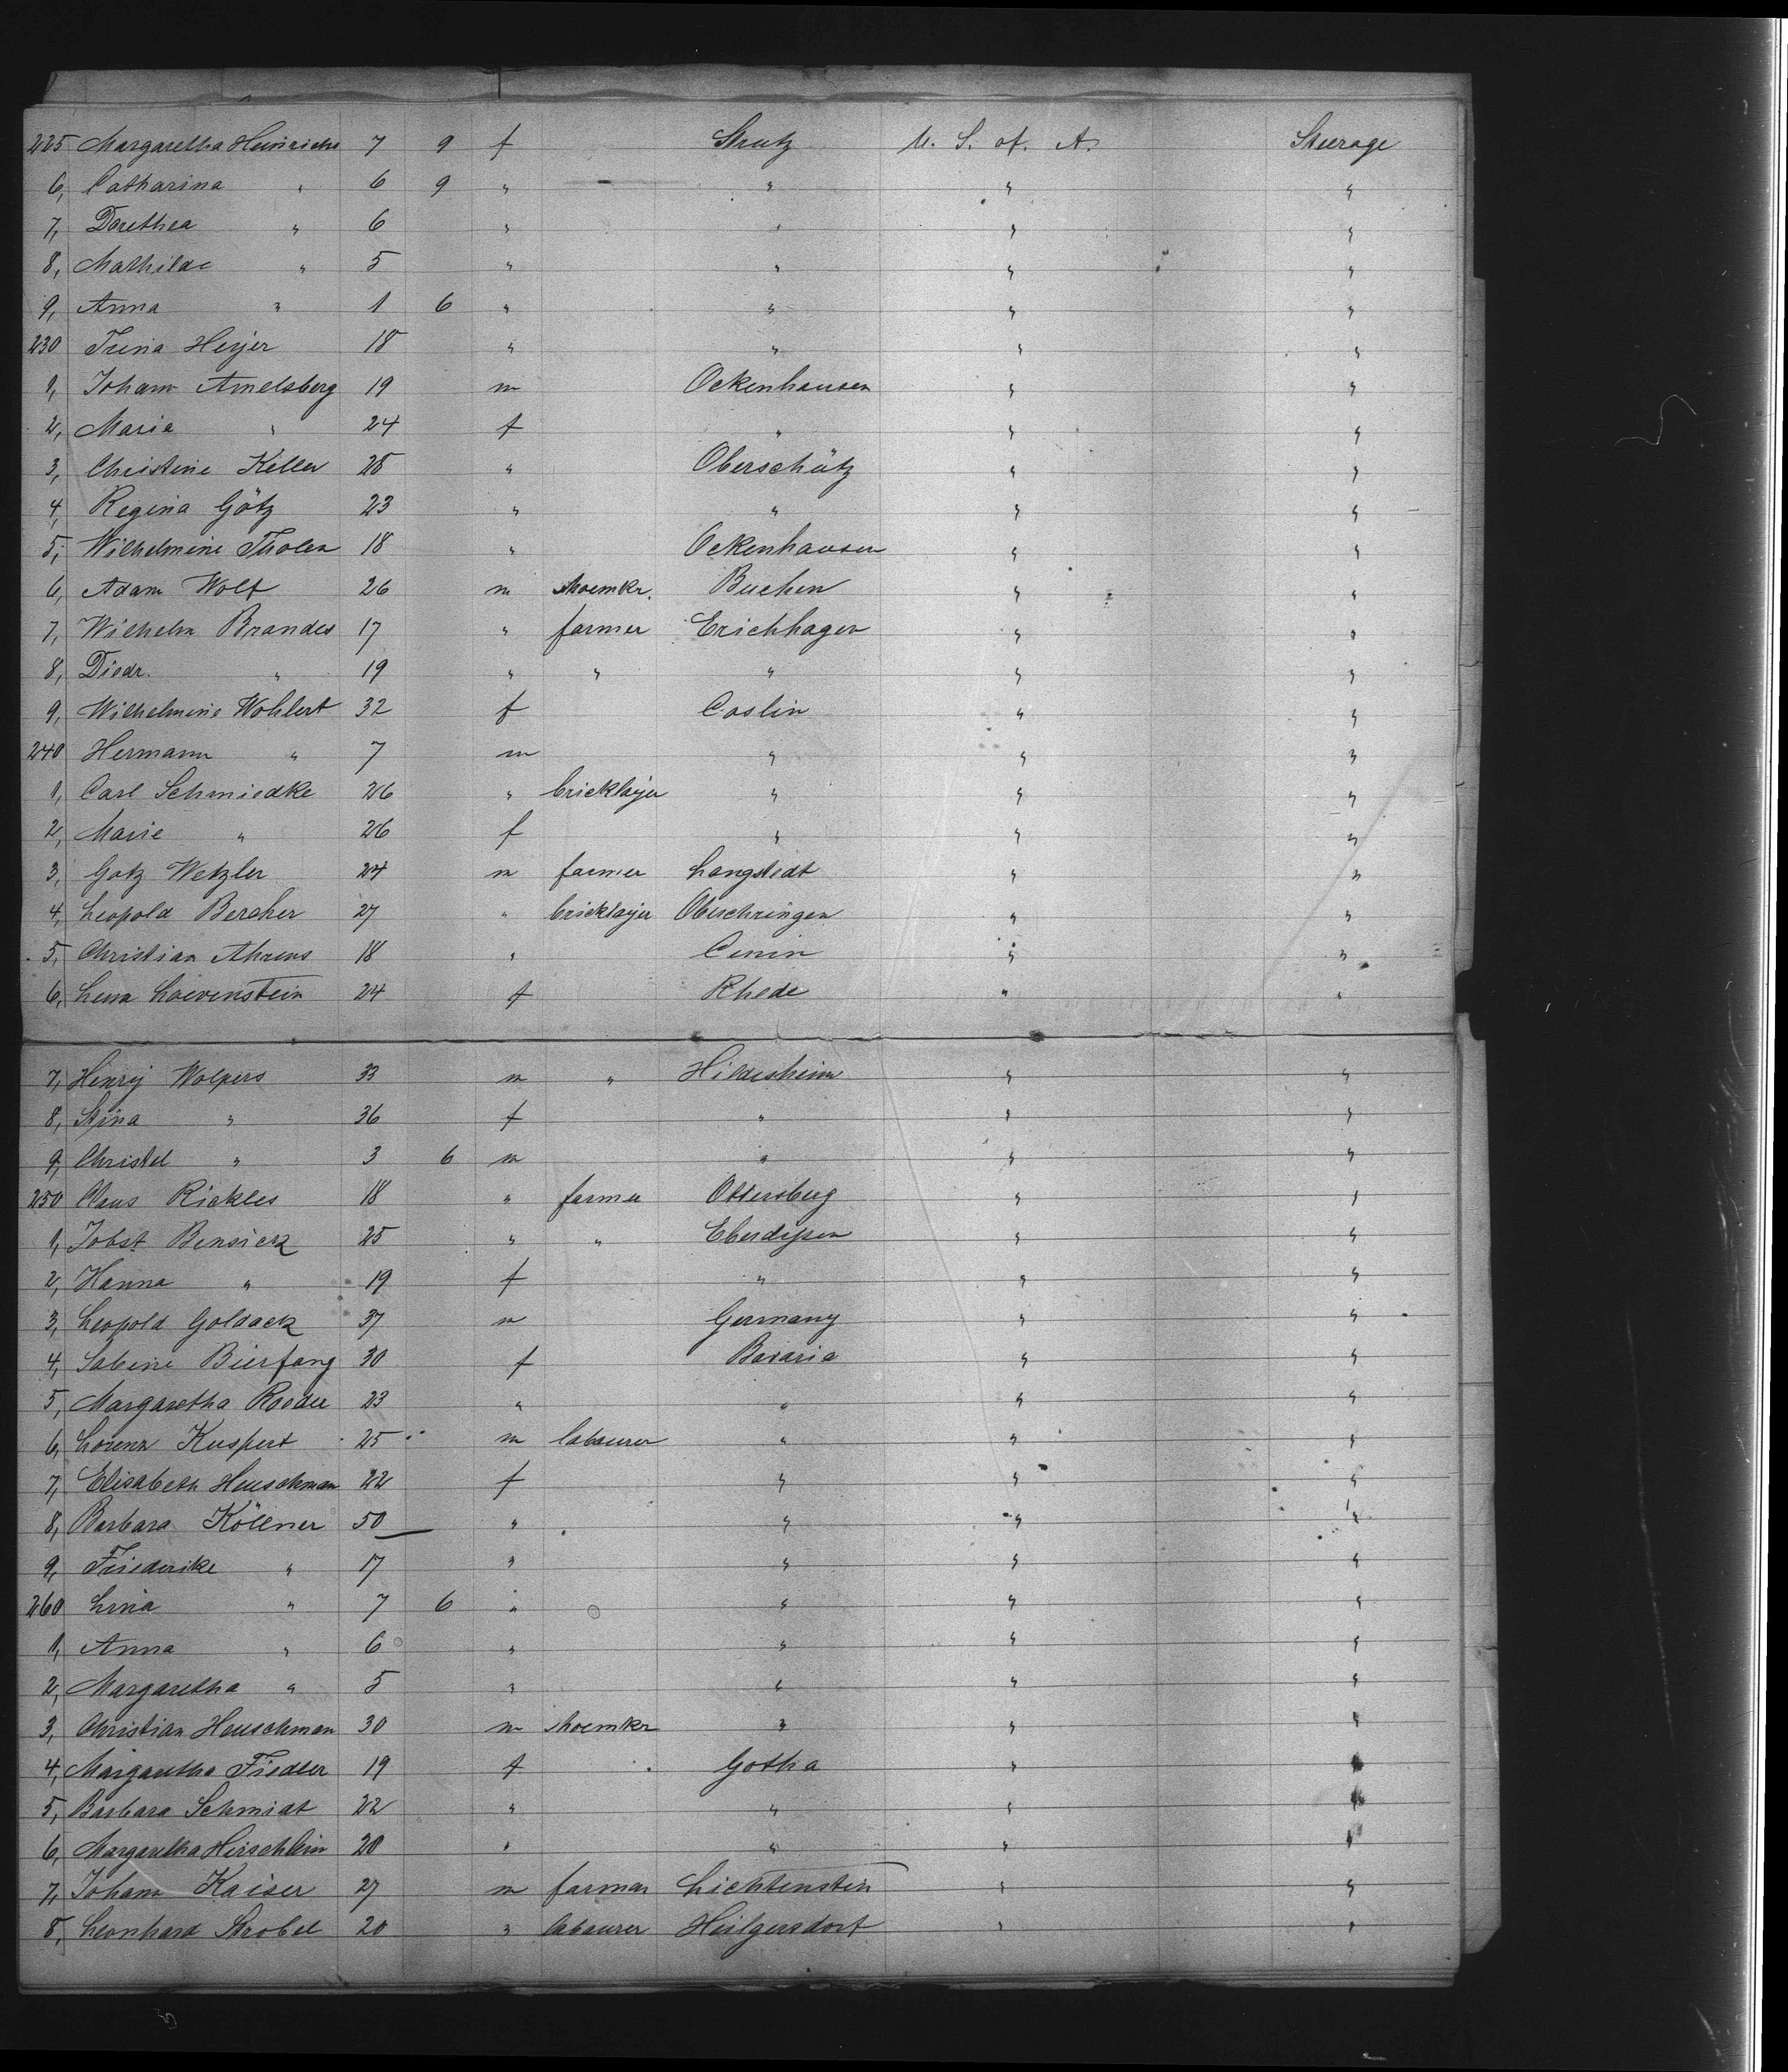 225 Margaretha Heinrichs 7 9 f Strutz U. S. of. A. Steerage
6, Catharina " 6 9 " " " "
7, Dorethea " 6 " " " "
8, Mathilde " 5 " " " "
9, Anna " 1 6 " " " "
230 Trina Heijer 18 " " " "
1, Johann Amelsberg 19 m Ockenhausen " "
2, Maria " 24 f " " "
3, Christine Keller 28 " Oberschütz " "
4, Regina Götz 23 " " " "
5, Wilhelmine Tholen 18 " Ockenhausen " "
6, Adam Wolf 26 m shoemkr. Buchen " "
7, Wilhelm Brandes 17 " farmer Erichhagen " "
8, Diedr. " 19 " " " " "
9, Wilhelmine Wohlert 32 f Coslin " "
240 Hermann " 7 m " " "
1, Carl Schmiedke 26 " bricklayer " " "
2, Marie " 26 f " " "
3, Gotz Wetzler 24 m farmer Langstedt " "
4, Leopold Bercher 27 " bricklayer Obeschringen " "
5, Christian Ahrens 18 " Cenin " "
6, Lena Loevenstein 24 f Rhede " "
7, Henrij Wolpers 33 m " Hildesheim " "
8, Stina " 36 f " " "
9, Christel " 3 6 m " " "
250 Claus Rickles 18 " farmer Ottersberg " "
1, Jobst Bensick 25 " " Eberdissen " "
2, Hanna " 19 f " " "
3, Leopold Goldack 37 m Germany " "
4, Sabine Bierfang 30 f Bavaria " "
5, Margaretha Roeder 23 " " " "
6, Lorenz Kuspert 25 m labourer " " "
7, Elisabeth Heuschman 22 f " " "
8, Barbara Köllner 50 " " " "
9, Friederike " 17 " " " "
260 Lina " 7 6 " " " "
1, Anna " 6 " " " "
2, Margaretha " 5 " " " "
3, Christian Heuschman 30 m shoemkr " " "
4, Margaretha Fiedler 19 f Gotha " "
5, Barbara Schmidt 22 " " " "
6, Margaretha Hirschlein 20 " " " "
7, Johann Kaiser 27 m farmer Lichtenstein " "
8, Leonhard Strobel 20 " labourer Heilgersdorf " "